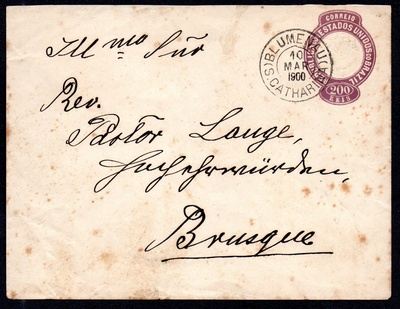 Illmo Snr
Rev.
Pastor Lange,
Hochehrwürden,
Brusque
BLUMENAU (S. CATHARINA)
10
MAR
1900
CORREIO
ESTADOS UNIDOS DO BRAZIL
200
REIS